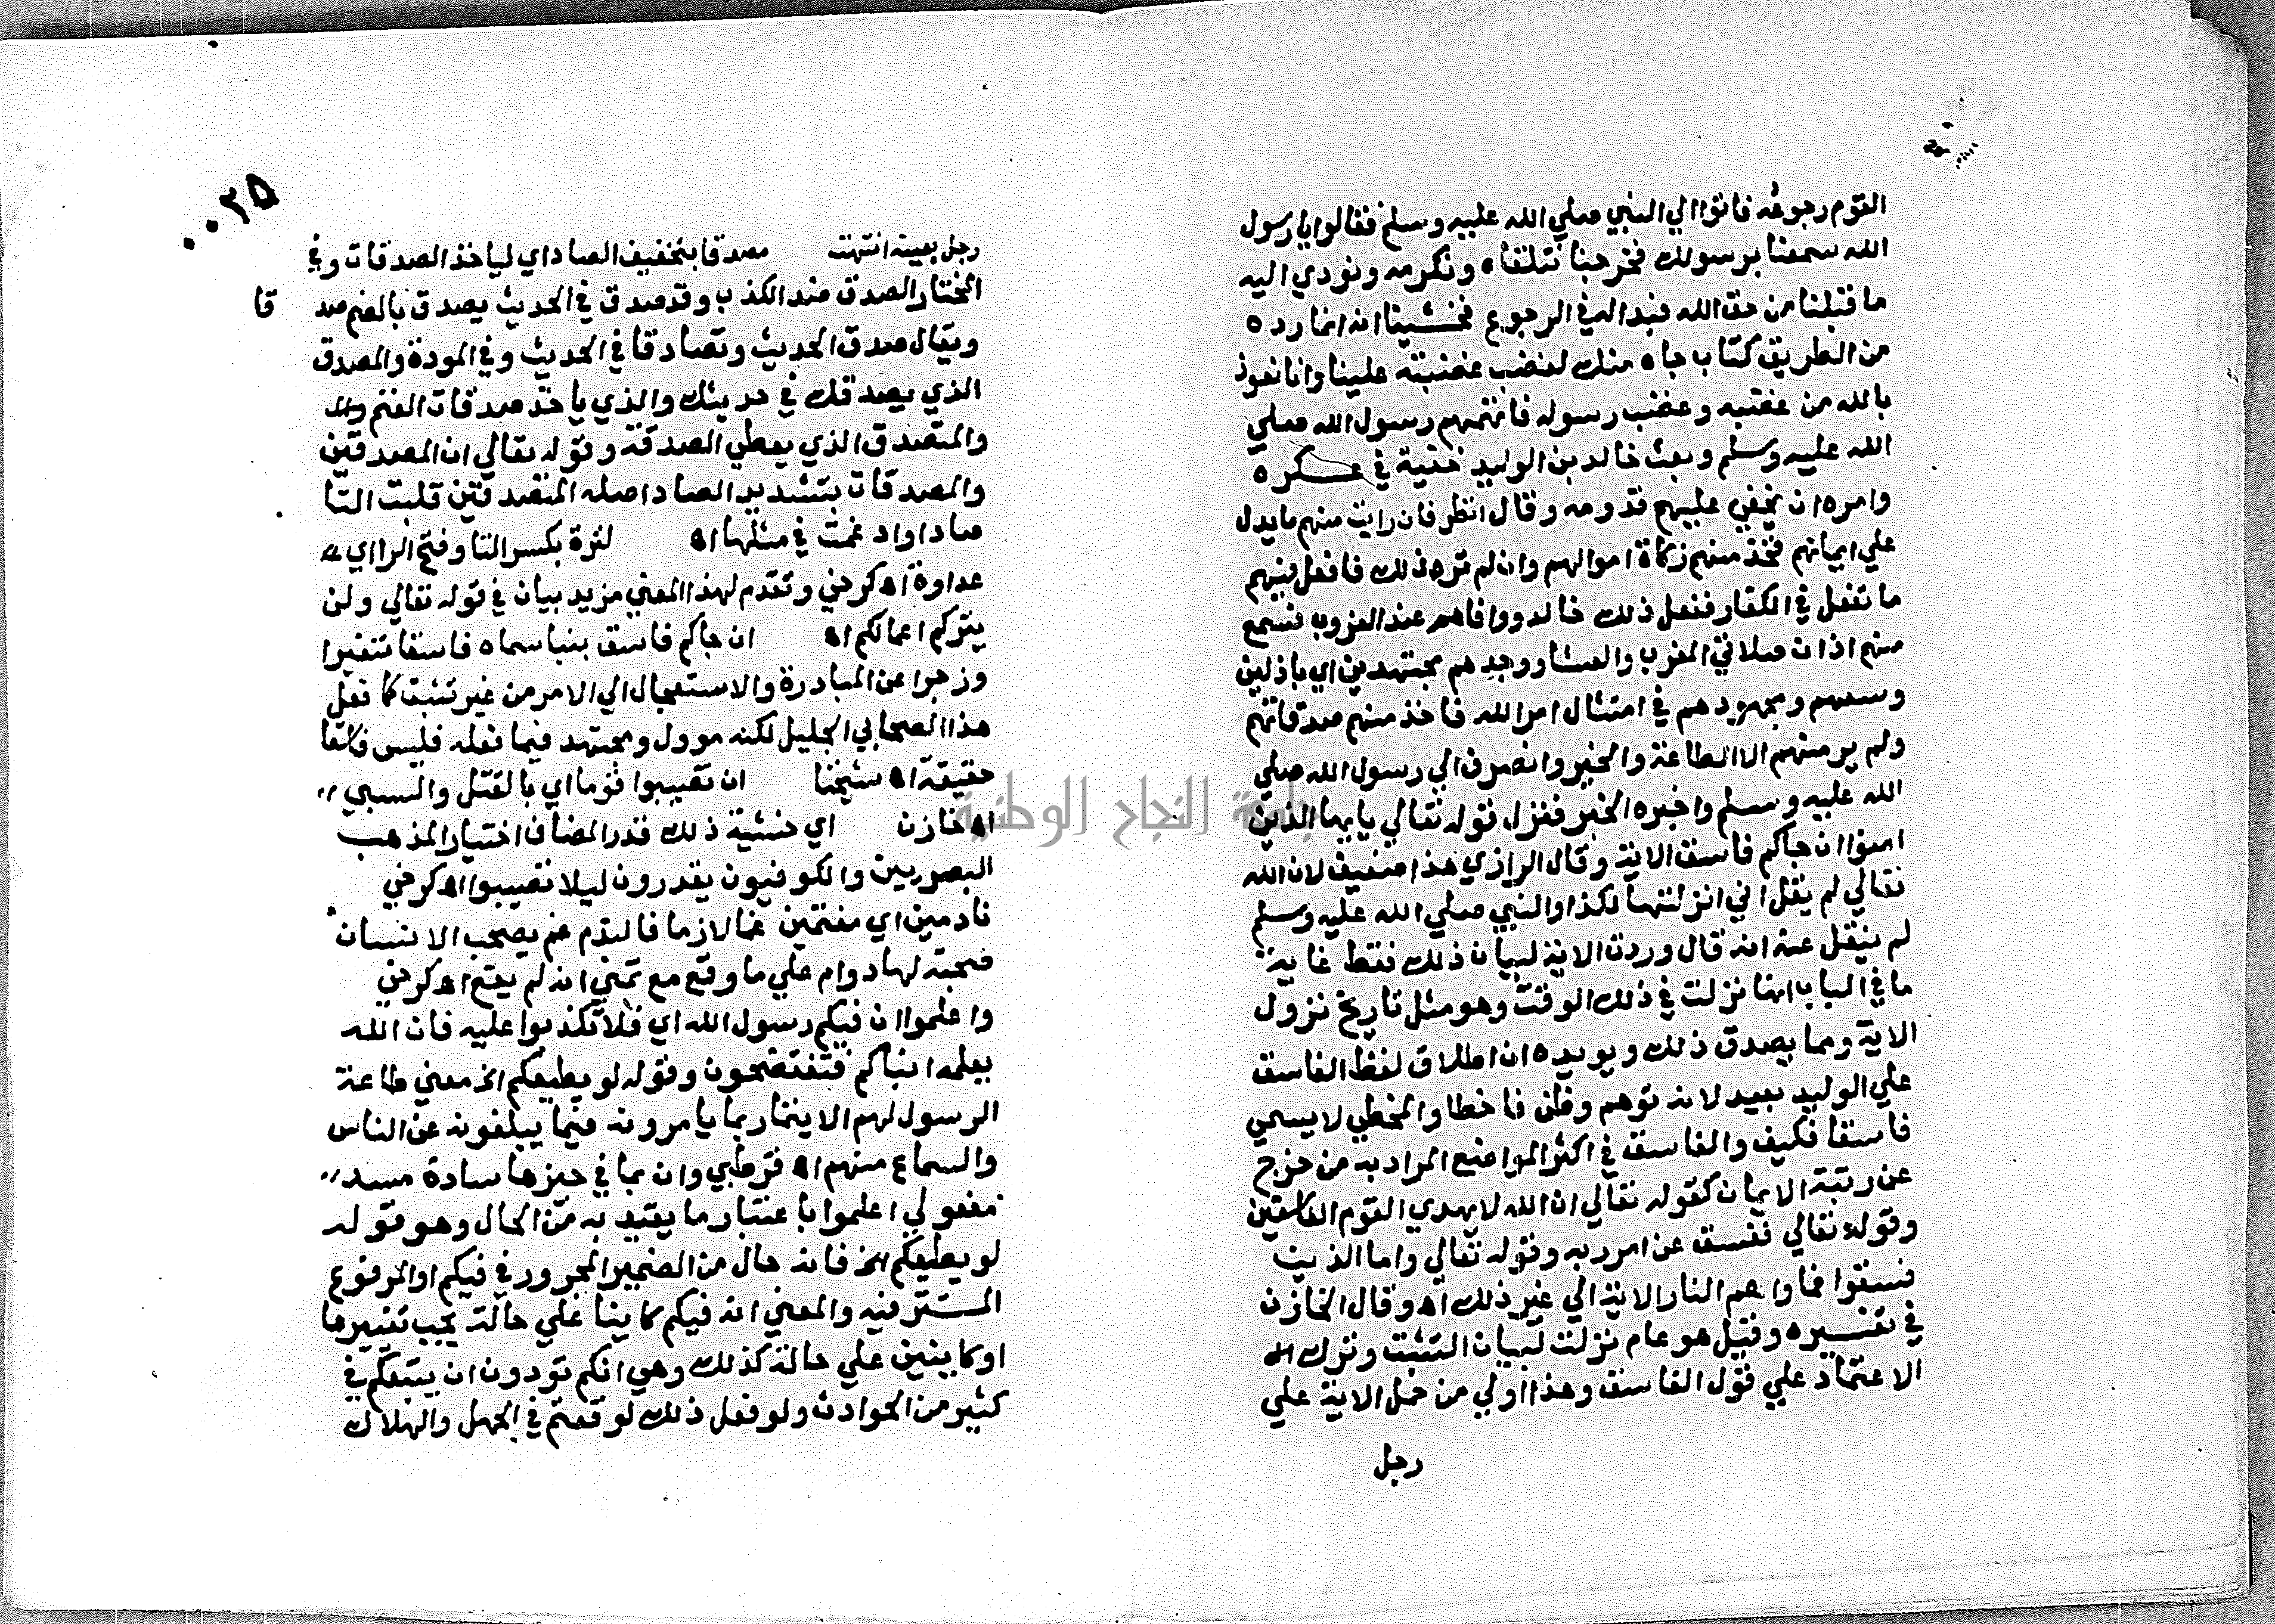 القوم رجوعه فاتوا الي النبي صلي الله عليه وسلم فقالوا يا رسول
الله سمعنا برسولك فخرجنا نتلقاه ونكرمه ونودي اليه
ما قبلنا من حق الله فبدا له في الرجوع فخشينا انه انما رده
من الطريق كتاب جاه منك لغضب غضبته علينا وانا نعوذ
بالله من غضبه وغضب رسوله فاتهمهم رسول الله صلي
الله عليه وسلم وبعث خالد بن الوليد خفية في عسكره
وامره ان يخفي عليهم قدومه وقال انظر فان رايت منهم ما يدل
علي ايمانهم فخذ منهم زكاة اموالهم وان لم تر ذلك فافعل فيهم
ما تفعل في الكفار ففعل ذلك خالد ووافاهم عند الغروب فسمع
منهم اذان صلاتي المغرب والعشا ووجدهم مجتهدين اي باذلين
وسعهم ومجهودهم في امتثال امر الله فاخذ منهم صدقاتهم
ولم ير منهم الا الطاعة والخير وانصرف الي رسول الله صلي
الله عليه وسلم واخبره الخبر فنزل قوله تعالي يا يها الذين
امنوا ان جاكم فاسق الاية وقال الرازي هذا ضعيف لان الله
تعالي لم يقل اني انزلتها لكذا والنبي صلي الله عليه وسلم
لم ينقل عنه انه قال وردت الاية لبيان ذلك فقط غاية
ما في الباب انها نزلت في ذلك الوقت وهو مثل تاريخ نزول
الاية ومما يصدق ذلك ويويده ان اطلاق لفظ الفاسق
علي الوليد بعيد لانه توهم وظن فاخطا والمخطي لا يسمي
فاسقا فكيف والفاسق في اكثر المواضع المراد به من خرج
عن رتبة الايمان كقوله تعالي ان الله لا يهدي القوم الفاسقين
وقوله تعالي ففسق عن امر ربه وقوله تعالي واما الذين
فسقوا فماواهم النار الاية الي غير ذلك اه وقال الخازن
في تفسيره وقيل هو عام نزلت لبيان التثبت وترك
الاعتماد علي قول الفاسق وهذا اولي من حمل الاية علي
رجل
٠٠٢٥
رجل بعينه انتهت مصدقا بتخفيف الصاد اي لياخذ الصدقات وفي
المختار الصدق ضد الكذب وقد صدق في الحديث يصدق بالضم صد قا
ويقال صدق الحديث وتصادقا في الحديث وفي المودة والمصدق
الذي يصدقك في حديثك والذي ياخذ صدقات الغنم
والمتصدق الذي يعطي الصدقة وقوله تعالي ان المصدقين
والمصدقات بتشديد الصاد اصله المتصدقين قلبت التا
صادا وادغمت في مثلها اه لترة بكسر التا وفتح الرا اي
عداوة اه كرخي وتقدم لهذا المعني مزيد بيان في قوله تعالي ولن
يتركم اعمالكم اه ان جاكم فاسق بنبا سماه فاسقا تنفيرا
وزجرا عن المبادرة والاستعجال الي الامر من غير تثبت كما فعل
هذا الصحابي الجليل لكنه موول ومجتهد فيما فعله فليس فاسقا
حقيقة اه شيخنا ان تصيبوا قوما اي بالقتل والسبي
اه خازن اي خشية ذلك قدر المضاف اختيار المذهب
البصريين والكوفيون يقدرون ليلا تصيبوا اه كرخي
نادمين اي مغتمين غما لازما فالندم غم يصحب الانسان
صحبة لها دوام علي ما وقع مع تمني انه لم يقع اه كرخي
واعلموا ان فيكم رسول الله اي فلا تكذبوا عليه فان الله
يعلمه انباكم فتفتضحون وقوله لو يطيعكم الخ معني طاعة
الرسول لهم الايتمار بما يامرونه فيما يبلغونه عن الناس
والسماع منهم اه قرطبي وان بما في حيزها سادة مسد
مفعولي اعلموا باعتبار ما يقيد به من الحال وهو قوله
لو يطيعكم الخ فانه حال من الضمير المجرور في فيكم او المرفوع
المستتر فيه والمعني انه فيكم كاينا علي حالة يجب تغييرها
او كاينين علي حالة كذلك وهي انكم تودون ان يتبعكم في
كثير من الحوادث ولو فعل ذلك لوقعتم في الجهل والهلاك
جامعة النجاح الوطنية